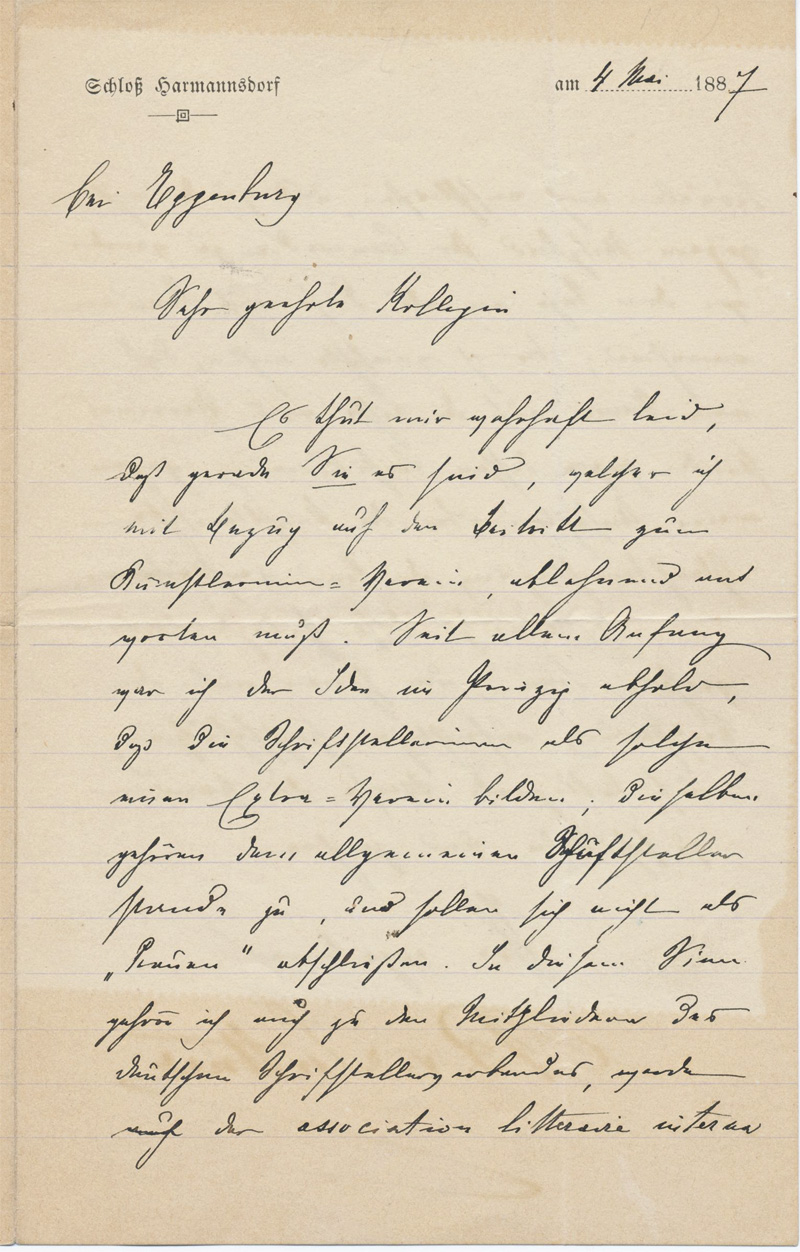 Schloß Harmannsdorf
am 4 Mai 1887
bei Eggenburg
Sehr geehrte Kollegin
Es thut mir wahrhaft leid,
daß gerade Sie es sind, welcher ich
mit Bezug auf den Beitritt zum
Künstlerinnen=Verein, ablehnend ant
worten muß. Seit allem Anfang
war ich der Idee im Prinzip abhold,
daß die Schriftstellerinnen als solche
einen Extra=Verein bilden; dieselben
gehören dem allgemeinen Schriftsteller
stande zu, und sollen sich nicht als
„Frauen" abschließen. In diesem Sinn
gehöre ich auch zu den Mitgliedern des
deutschen Schriftstellerverbandes, werde
auch der association litteraire interna